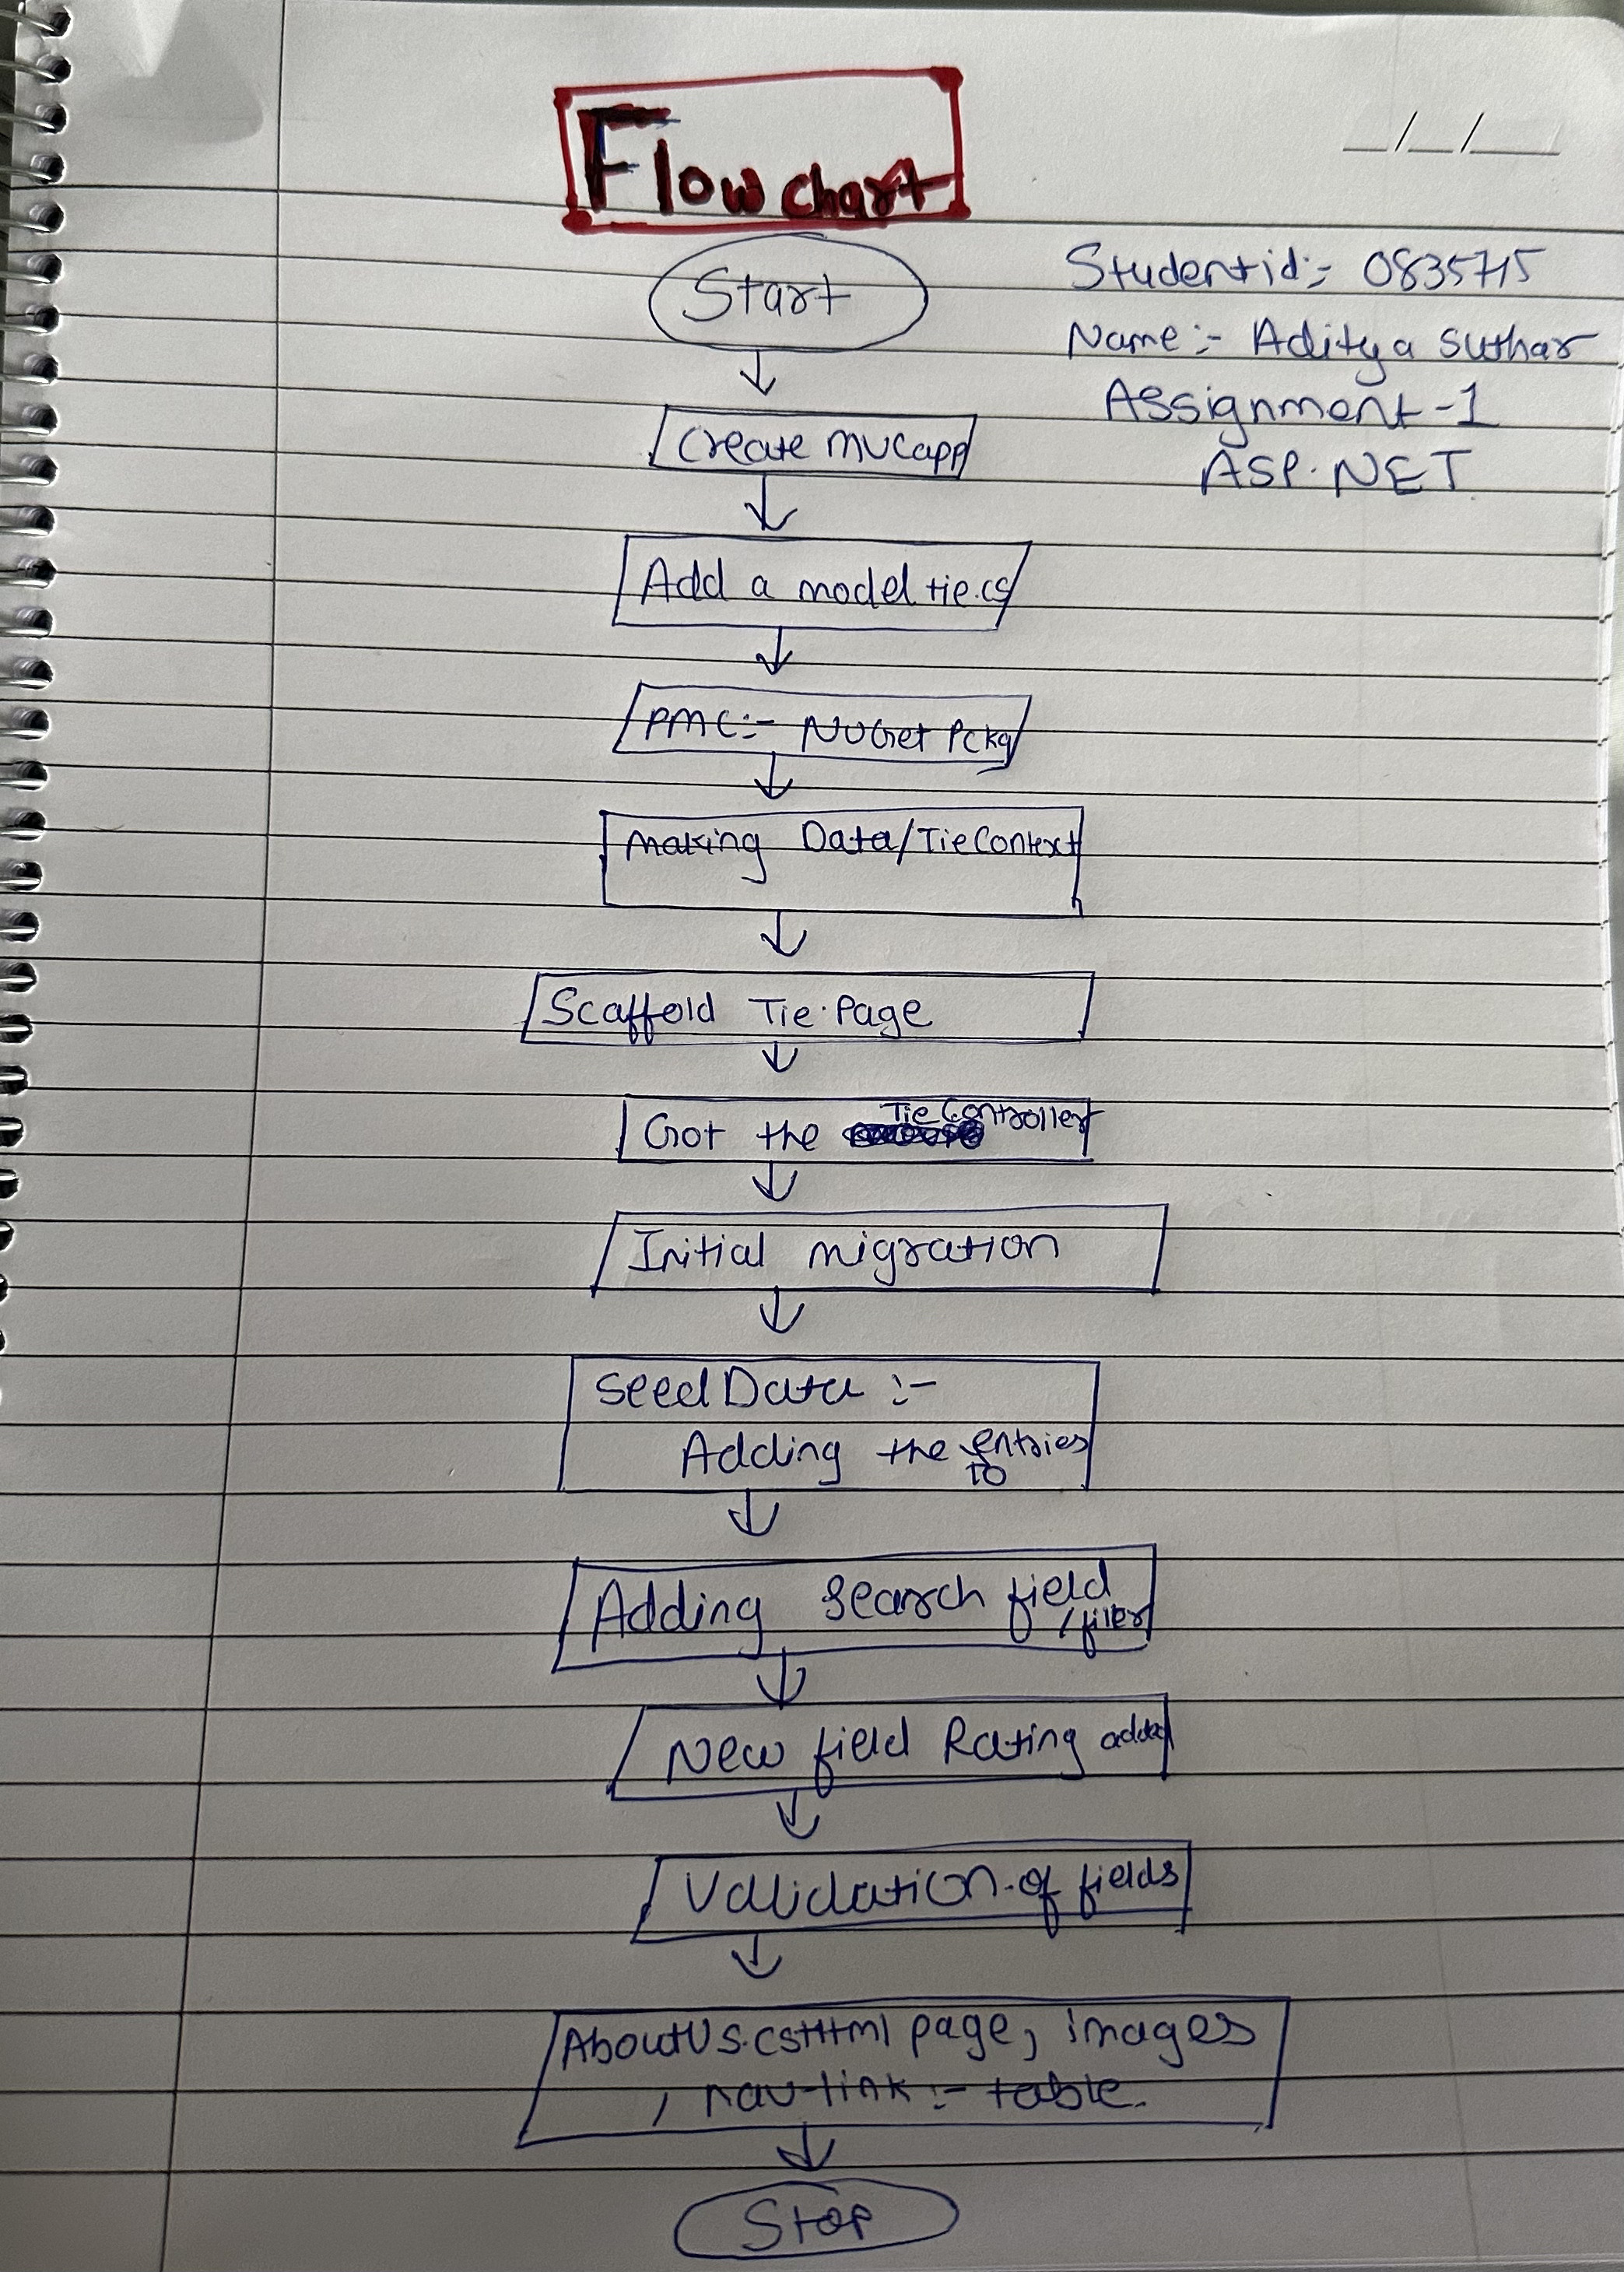 Flow chart
Start
Studentid:- 0835715
Name:- Aditya Suthar
Assignment-1
ASP.NET
Create MVCapp
Add a model tie.cs
PMC:- NUGet Pckg
Making Data/TieContext
Scaffold Tie.Page
Got the Tie Controller
Initial migration
SeedData :-
Adding the entries
TO
Adding Search field
/filer
New field Rating added
Validation of fields
AboutUs.csHtml page, images
, nav-link :- table.
Stop